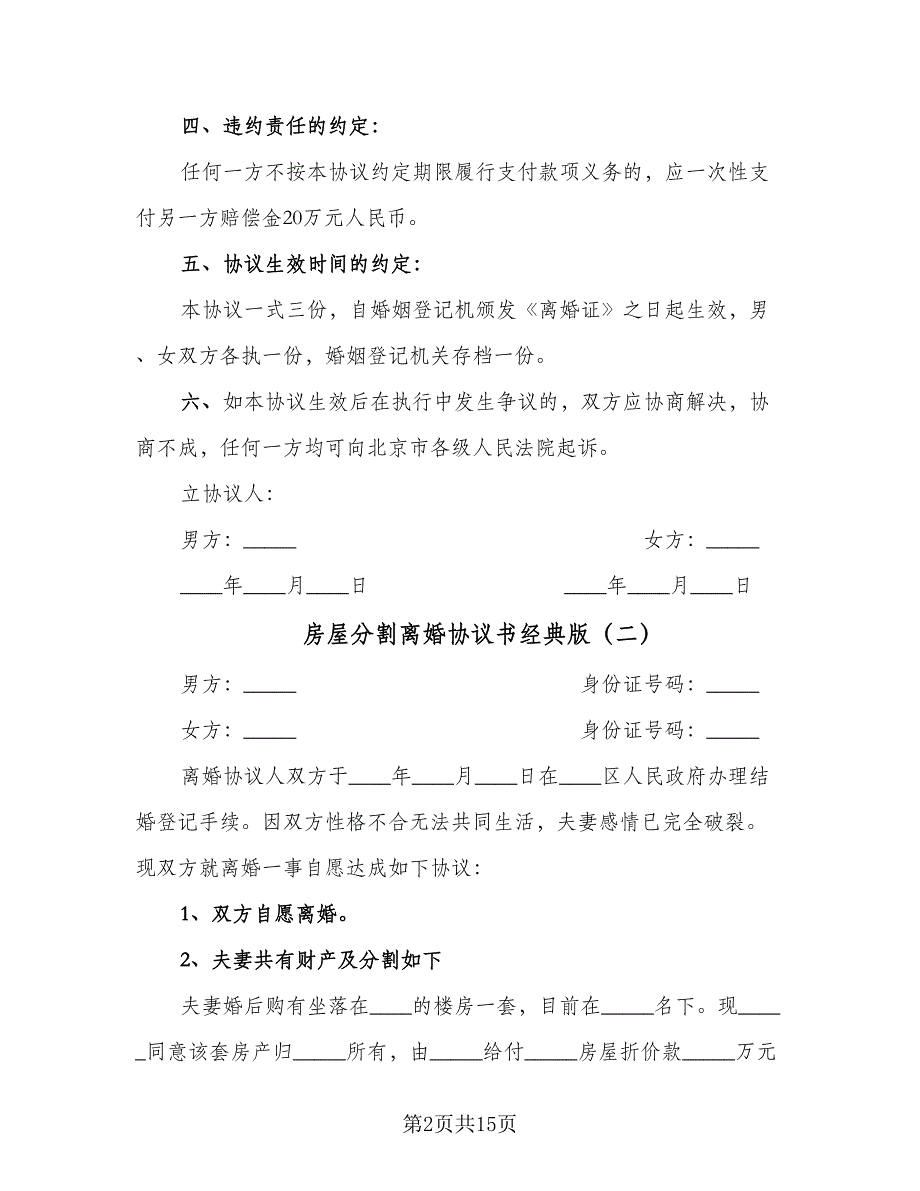 四、违约责任的约定：
任何一方不按本协议约定期限履行支付款项义务的，应一次性支
付另一方赔偿金20万元人民币。
五、协议生效时间的约定：
本协议一式三份，自婚姻登记机颁发《离婚证》之日起生效，男
、女双方各执一份，婚姻登记机关存档一份。
六、如本协议生效后在执行中发生争议的，双方应协商解决，协
商不成，任何一方均可向北京市各级人民法院起诉。
立协议人：
男方：_____ 女方：_____
____年____月____日 ____年____月____日
房屋分割离婚协议书经典版（二）
男方：_____ 身份证号码：_____
女方：_____ 身份证号码：_____
离婚协议人双方于____年____月____日在____区人民政府办理结
婚登记手续。因双方性格不合无法共同生活，夫妻感情已完全破裂。
现双方就离婚一事自愿达成如下协议：
1、双方自愿离婚。
2、夫妻共有财产及分割如下
夫妻婚后购有坐落在____的楼房一套，目前在_____名下。现____
_同意该套房产归_____所有，由_____给付_____房屋折价款_____万元
第2页共15页